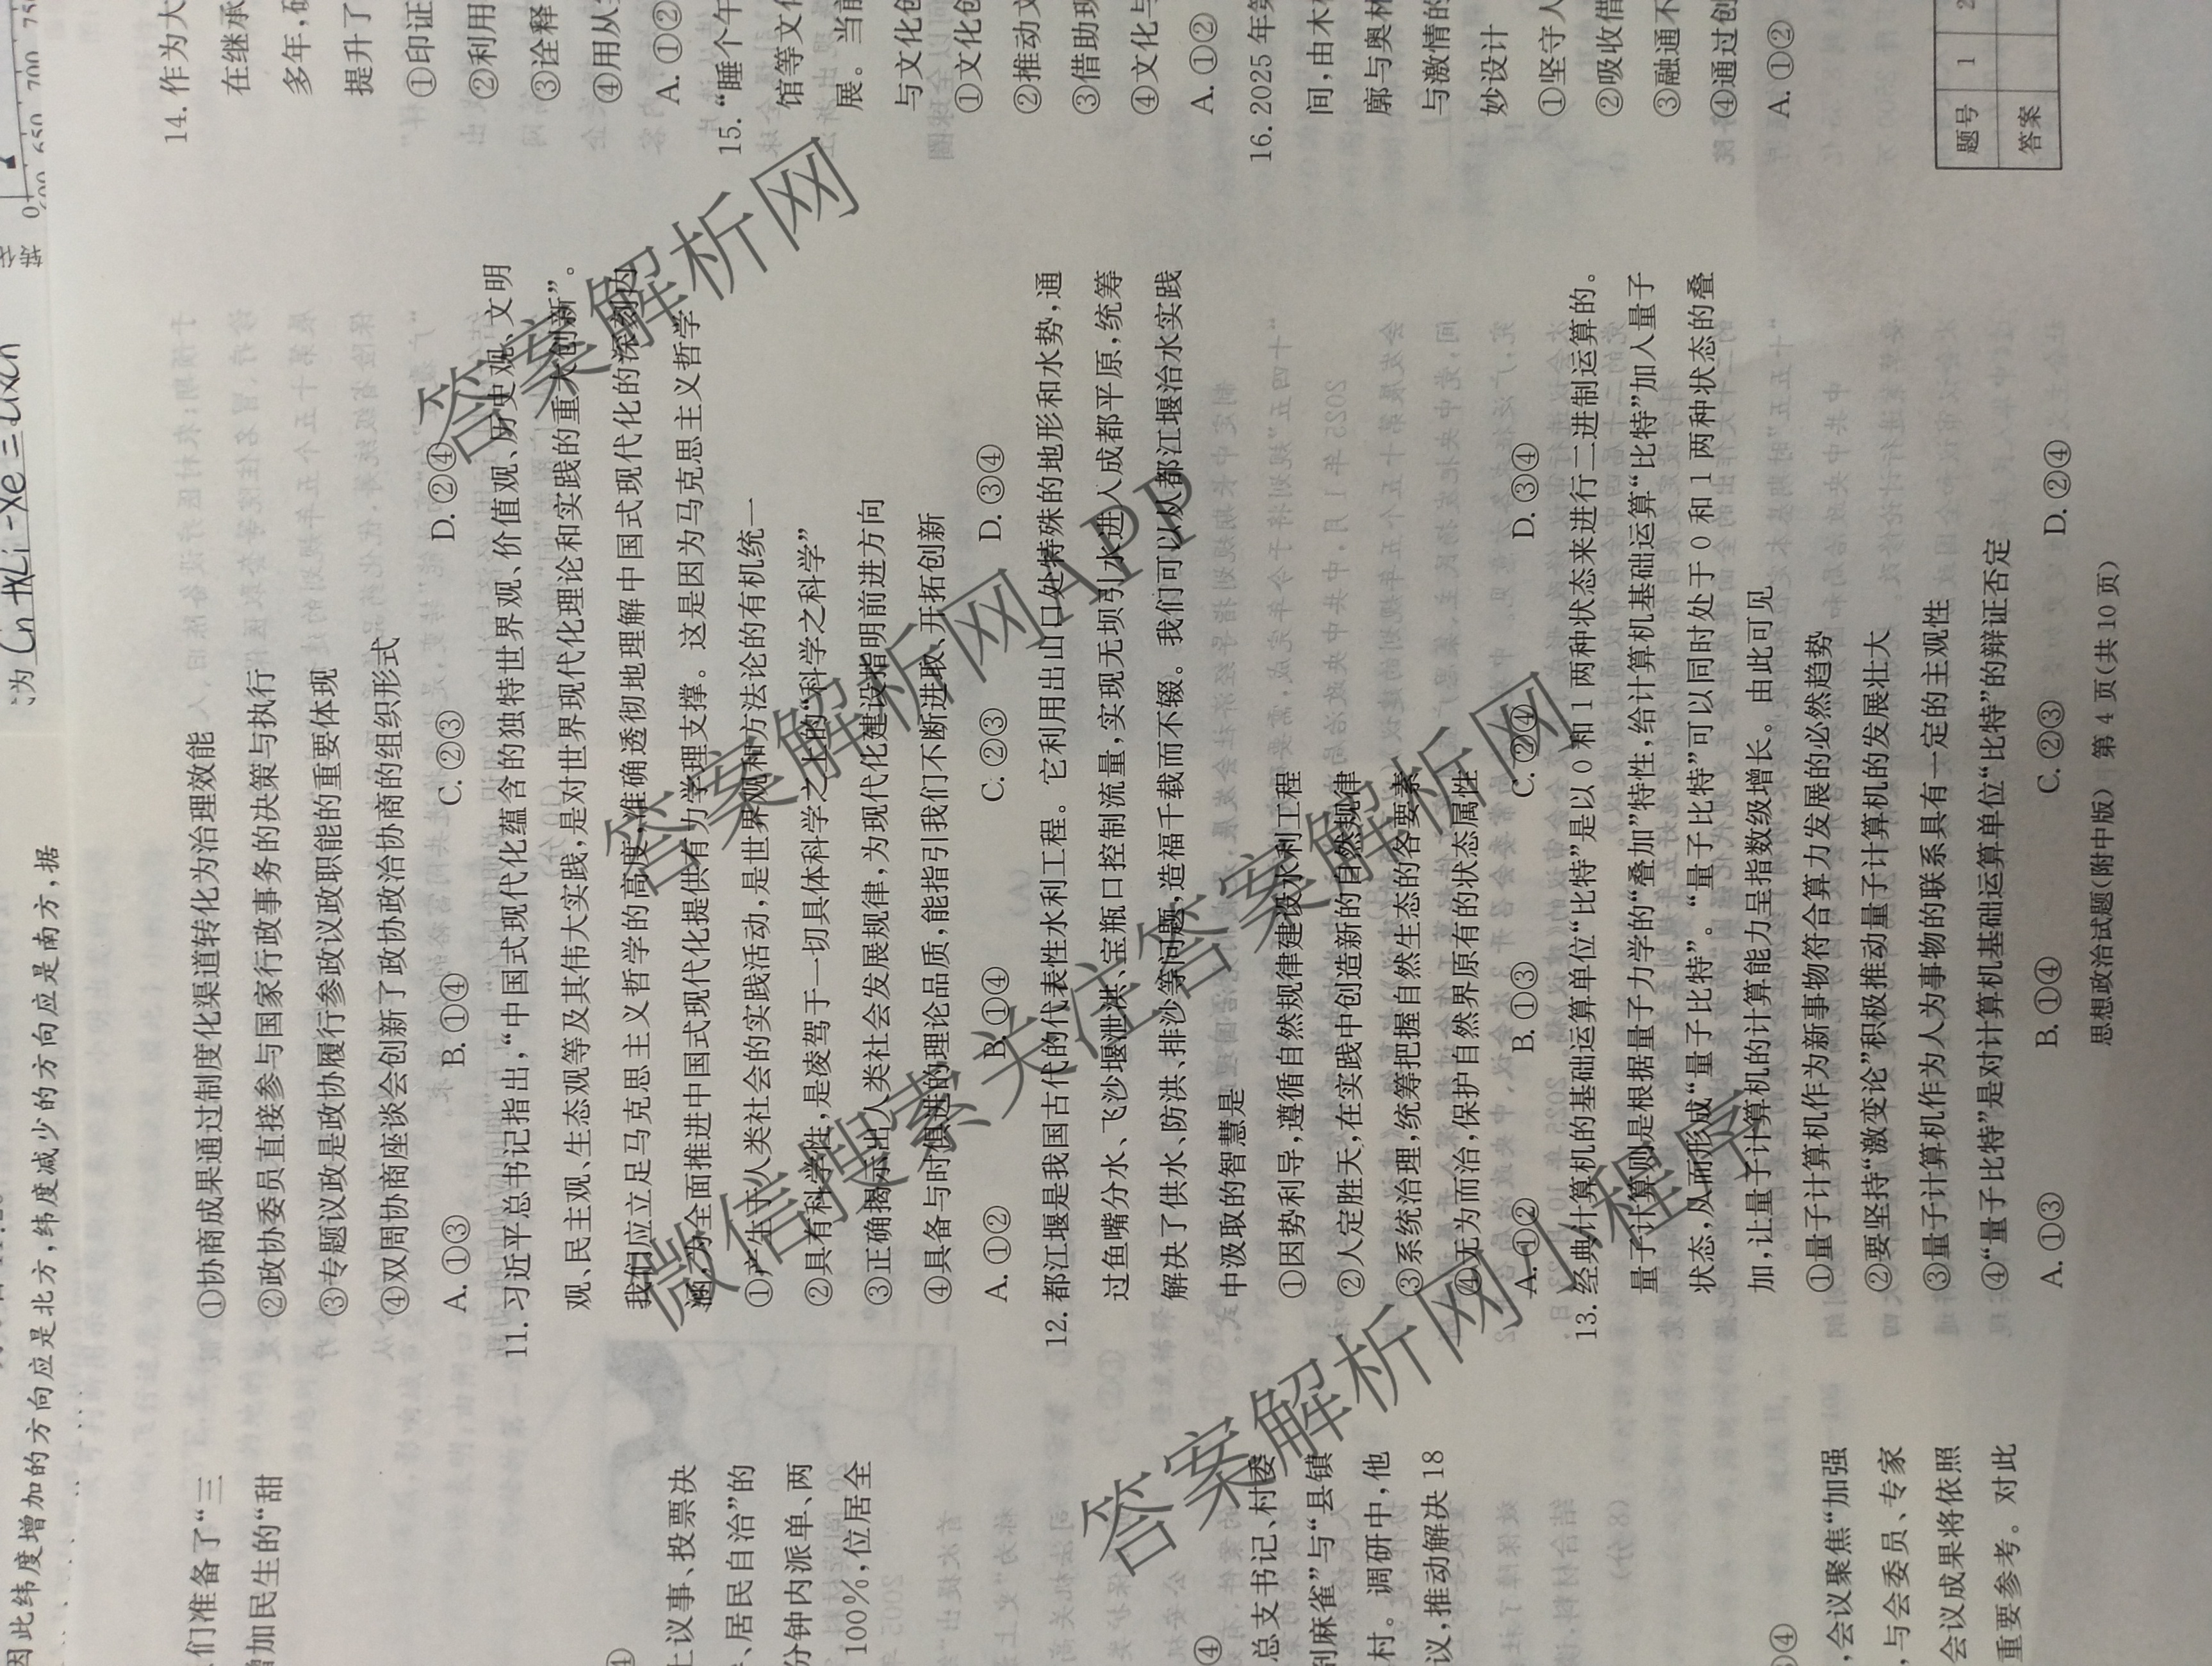 因此纬度增加的方向应是北方,纬度减少的方向应是南方,据
们准备了“三
增加民生的“甜
上议事、投票决
、居民自治”的
分钟内派单、两
100%,位居全
④
总支书记、村委
剖麻雀”与“县镇
村。调研中,他
议,推动解决 18
③④
,会议聚焦“加强
,与会委员、专家
会议成果将依照
重要参考。对此
①协商成果通过制度化渠道转化为治理效能
②政协委员直接参与国家行政事务的决策与执行
③专题议政是政协履行参政议政职能的重要体现
④双周协商座谈会创新了政协政治协商的组织形式
A. ①③ B. ①④ C. ②③ D. ②④
11. 习近平总书记指出,“中国式现代化蕴含的独特世界观、价值观、历史观、文明
观、民主观、生态观等及其伟大实践,是对世界现代化理论和实践的重大创新”。
我们应立足马克思主义哲学的高度,准确透彻地理解中国式现代化的深刻内
涵,为全面推进中国式现代化提供有力学理支撑。这是因为马克思主义哲学
①产生于人类社会的实践活动,是世界观和方法论的有机统一
②具有科学性,是凌驾于一切具体科学之上的“科学之科学”
③正确揭示出人类社会发展规律,为现代化建设指明前进方向
④具备与时俱进的理论品质,能指引我们不断进取、开拓创新
A. ①② B. ①④ C. ②③ D. ③④
12. 都江堰是我国古代的代表性水利工程。它利用出山口处特殊的地形和水势,通
过鱼嘴分水、飞沙堰泄洪、宝瓶口控制流量,实现无坝引水进入成都平原,统筹
解决了供水、防洪、排沙等问题,造福千载而不辍。我们可以从都江堰治水实践
中汲取的智慧是
①因势利导,遵循自然规律建设水利工程
②人定胜天,在实践中创造新的自然规律
③系统治理,统筹把握自然生态的各要素
④无为而治,保护自然界原有的状态属性
A. ①② B. ①③ C. ②④ D. ③④
13. 经典计算机的基础运算单位“比特”是以 0 和 1 两种状态来进行二进制运算的。
量子计算则是根据量子力学的“叠加”特性,给计算机基础运算“比特”加入量子
状态,从而形成“量子比特”。“量子比特”可以同时处于 0 和 1 两种状态的叠
加,让量子计算机的计算能力呈指数级增长。由此可见
①量子计算机作为新事物符合算力发展的必然趋势
②要坚持“激变论”积极推动量子计算机的发展壮大
③量子计算机作为人为事物的联系具有一定的主观性
④“量子比特”是对计算机基础运算单位“比特”的辩证否定
A. ①③ B. ①④ C. ②③ D. ②④
思想政治试题(附中版) 第 4 页(共 10 页)
14. 作为大
在继承
多年,
提升了
①印证
②利用
③诠释
④用从
A. ①②
15. “睡个午
馆等文化
展。当前
与文化创
①文化创
②推动文
③借助现
④文化与
A. ①②
16. 2025 年第
间,由木
廓与奥林
与激情的
妙设计
①坚守人
②吸收借
③融通不
④通过创
A. ①②
题号 1 2
答案
答案解析网
答案解析网APP
微信搜索关注答案解析网
答案解析网小程序